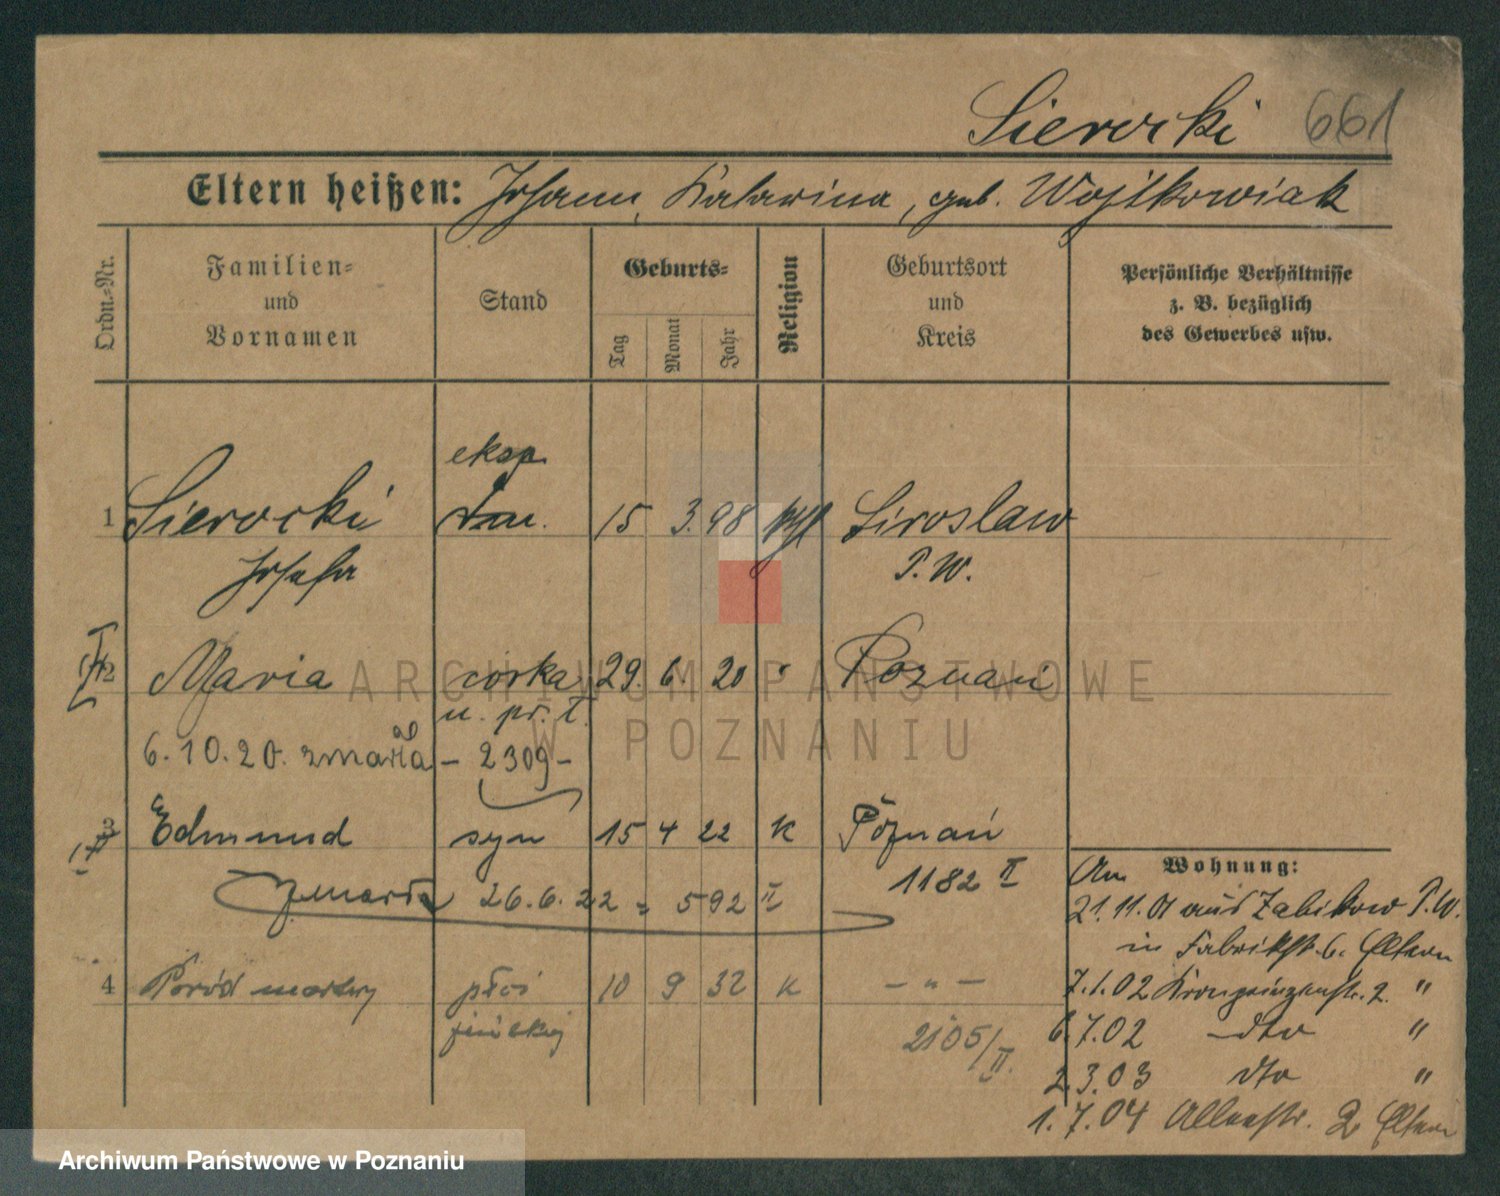 Sierocki 661
Eltern heißen: Johann, Katarina, geb. Wojtkowiak
Ordn.-Nr.
Familien- und Vornamen
Stand
Geburts-
Tag
Monat
Jahr
Religion
Geburtsort und Kreis
Persönliche Verhältnisse z. B. bezüglich des Gewerbes usw.
eksp.
1 Sierocki 15 3. 98 kath Siroslaw
Josefa P. W.
2 Maria córka 29. 6. 20 " Poznań
n. pr. T.
6.10.20. zmarła - 2309 -
3 Edmund syn 15 4 22 k Poznań
1182 II
zmarł 26.6.22 = 592 II
4 Poród martwy płci 10 9 32 k - " -
żeńskiej 2105/II.
Wohnung:
Am
21.11.01 aus Zabikowo P.W.
in Fabrikstr. 6. Eltern
7.1.02 Kronprinzenstr. 2. "
6.7.02 dto "
2.3.03 dto "
1.7.04 Alleestr. 2 Eltern
ARCHIWUM PAŃSTWOWE
W POZNANIU
Archiwum Państwowe w Poznaniu